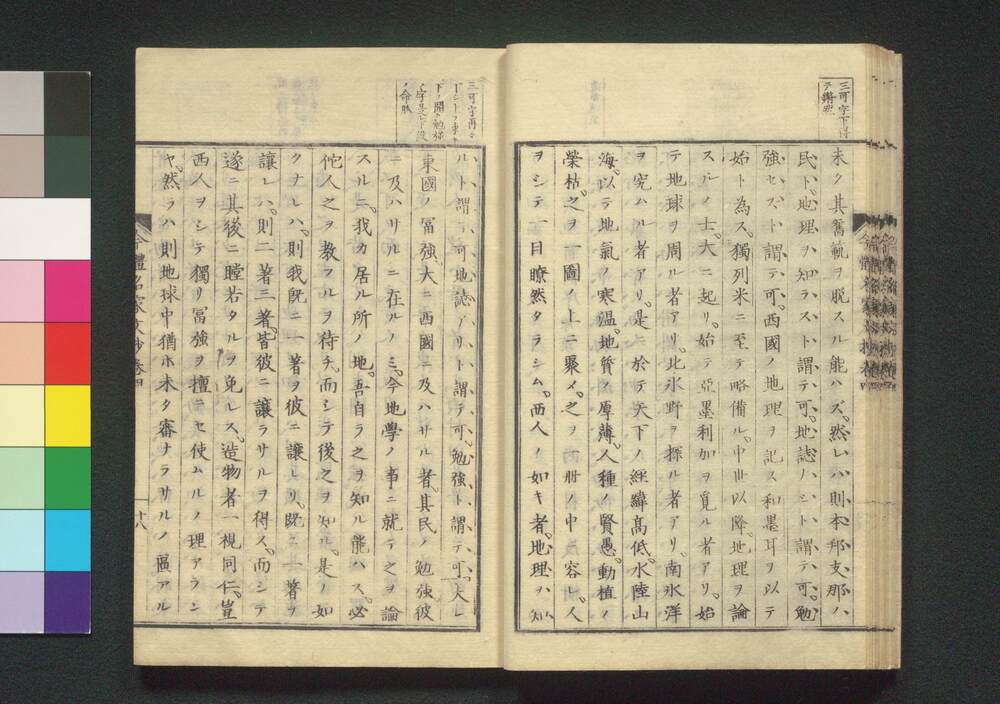 三可字下得
未タ其舊軌ヲ脱スル能ハズ。然レハ則本邦支那ハ
民ト、地理ヲ知ラスト謂テ可。地誌ハシト謂テ可。勉
強セズト謂テ可。西國ノ地理ヲ記ス和墨耳ヲ以テ
始ト為ス。獨列米ニ至テ略備ル。中世以降。地理ヲ論
スルノ士。大ニ起リ。始テ亞墨利加ヲ覓ル者アリ。始
テ地球ヲ周ル者アリ。北氷野ヲ探ル者アリ。南氷洋
ヲ究ハル者アリ。是ニ於テ天下ノ經緯髙低。水陸山
海。以テ地氣ノ寒温。地質ノ厚薄。人種ノ賢愚。動植ノ
榮枯。之ヲ一圖ノ上ニ聚メ。之ヲ一冊ノ中ニ容レ。人
ヲシテ一目瞭然タラシム。西人ノ如キ者。地理ヲ知
三可字再
ル、ト謂テ可。地誌アリト謂テ可。勉強ト謂テ可。夫レ
東國ノ冨強。大ニ西國ニ及ハサル者。其民ノ勉強。彼
ニ及ハサルニ在ルノミ。今地學ノ事ニ就テ之ヲ論
スルニ。我カ居ル所ノ地。吾自ラ之ヲ知ル能ハス。必
佗人之ヲ教ヲルヲ待チ。而シテ後之ヲ知ル。是ノ如
クナレハ。則我既ニ一著ヲ彼ニ讓レリ。既ニ一著ヲ
讓レハ。則二著三著。皆彼ニ讓ラサルヲ得ス。而シテ
遂ニ其後ニ瞠若タルヲ免レス。造物者一視同仁。豈
西人ヲシテ獨リ冨強ヲ擅ニセ使ムルノ理アラン
ヤ。然ラハ則地球中猶ホ未タ審ナラサルノ區アル
今體名家文抄卷四
十八